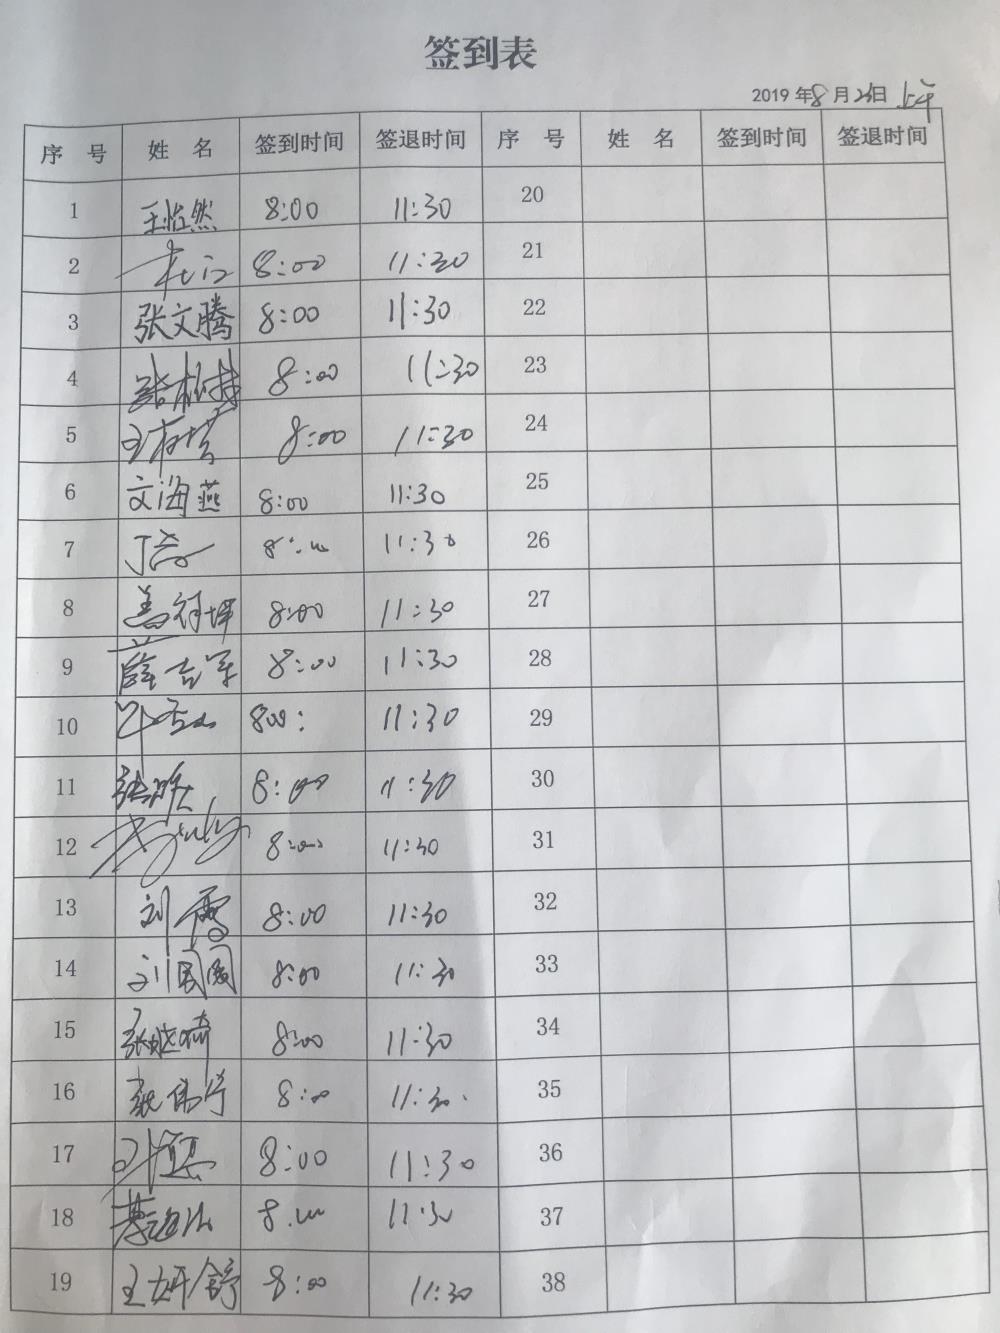 签到表
2019年8月 日 上午
序 号 姓 名 签到时间 签退时间 序 号 姓 名 签到时间 签退时间
1 王怡然 8:00 11:30 20
2 8:00 11:30 21
3 张文腾 8:00 11:30 22
4 8:00 11:30 23
5 8:00 11:30 24
6 文海燕 8:00 11:30 25
7 8:00 11:30 26
8 8:00 11:30 27
9 薛吉军 8:00 11:30 28
10 800: 11:30 29
11 8:00 11:30 30
12 8:00 11:30 31
13 刘霞 8:00 11:30 32
14 8:00 11:30 33
15 8:00 11:30 34
16 8:00 11:30 35
17 8:00 11:30 36
18 8:00 11:30 37
19 王妍舒 8:00 11:30 38